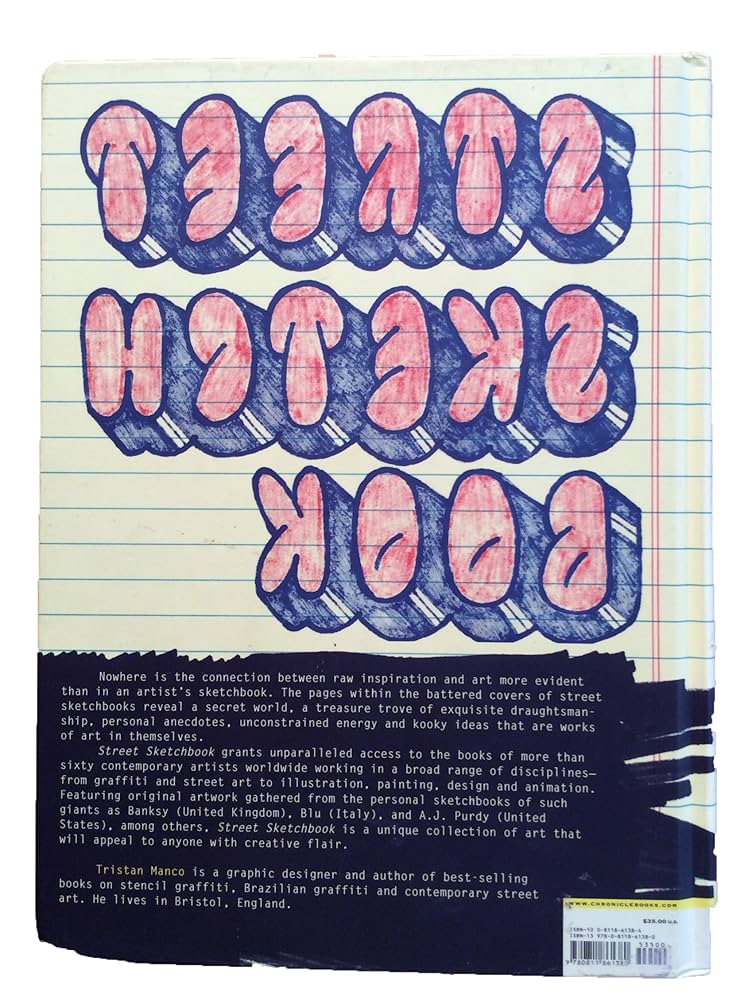 STREET
SKETCH
BOOK
Nowhere is the connection between raw inspiration and art more evident
than in an artist's sketchbook. The pages within the battered covers of street
sketchbooks reveal a secret world, a treasure trove of exquisite draughtsman-
ship, personal anecdotes, unconstrained energy and kooky ideas that are works
of art in themselves.
Street Sketchbook grants unparalleled access to the books of more than
sixty contemporary artists worldwide working in a broad range of disciplines—
from graffiti and street art to illustration, painting, design and animation.
Featuring original artwork gathered from the personal sketchbooks of such
giants as Banksy (United Kingdom), Blu (Italy), and A.J. Purdy (United
States), among others, Street Sketchbook is a unique collection of art that
will appeal to anyone with creative flair.
Tristan Manco is a graphic designer and author of best-selling
books on stencil graffiti, Brazilian graffiti and contemporary street
art. He lives in Bristol, England.
WWW.CHRONICLEBOOKS.COM
$35.00 U.S.
ISBN-10 0-8118-6138-4
ISBN-13 978-0-8118-6138-0
53500
9 780811 861380